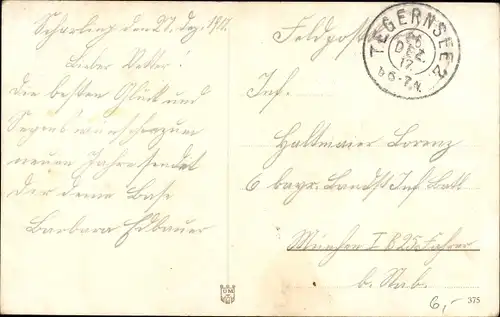 Scharling den 27. Dez. 1917.
Lieber Vetter.
die besten Glück und
Segenswünsche zum
neuen Jahre sendet
Dir deine Base
Barbara Erlbauer
Feldpost
TEGERNSEE 2
26
DEZ.
17.
6-7 N.
Inf.
Haltmaier Lorenz
6 bayr. Landst. Inf. Batl
München I B 25 Fahrer
b. Stab.
6,-
375